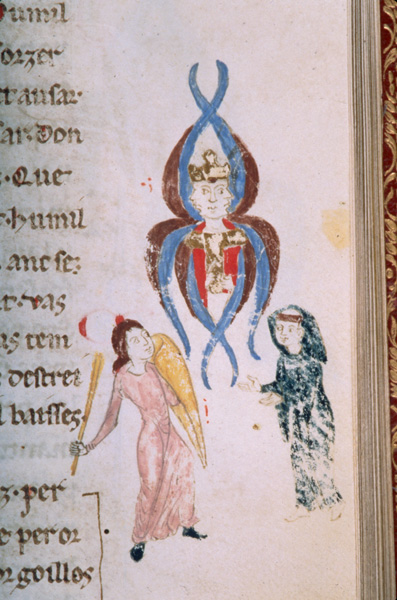 humil
sorzer
ausar
sar. Don
z. Que
humil
anc sez
vas
as tem
destret
l baissez
z. per
e per or
orgoillos